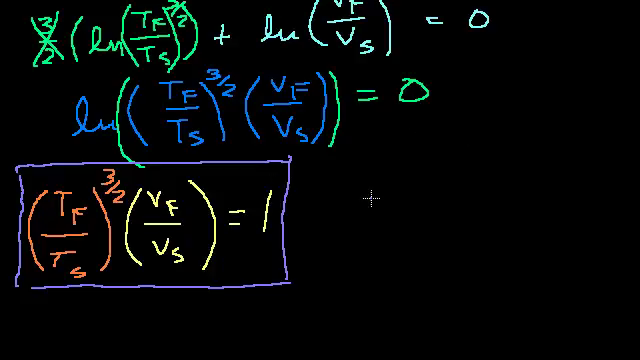 3/2 (ln(T_F/T_S)^3/2) + ln(V_F/V_S) = 0
ln((T_F/T_S)^3/2 (V_F/V_S)) = 0
(T_F/T_S)^3/2 (V_F/V_S) = 1